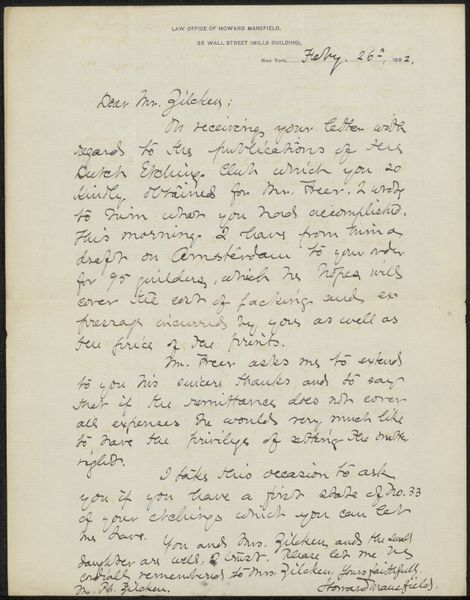 LAW OFFICE OF HOWARD MANSFIELD,
35 WALL STREET (MILLS BUILDING),
New York, Feby. 26th, 1892.
Dear Mr. Zilcken;
On receiving your letter with
regards to the publications of the
Dutch Etching Club which you so
kindly obtained for Mr. Freer, I wrote
to him what you had accomplished.
This morning I have from him a
draft on Amsterdam to your order
for 95 guilders, which he hopes will
cover the cost of packing and ex
pressage incurred by you as well as
the price of the prints.
Mr. Freer asks me to extend
to you his sincere thanks and to say
that if the remittance does not cover
all expenses he would very much like
to have the privilege of setting the matter
right.
I take this occasion to ask
you if you have a first state of No. 33
of your etchings which you can let
me have.
You and Mrs. Zilcken, and the small
daughter are well, I trust. Please let me be
cordially remembered to Mrs. Zilcken. Yours faithfully,
Mr. Ph. Zilcken. Howard Mansfield.